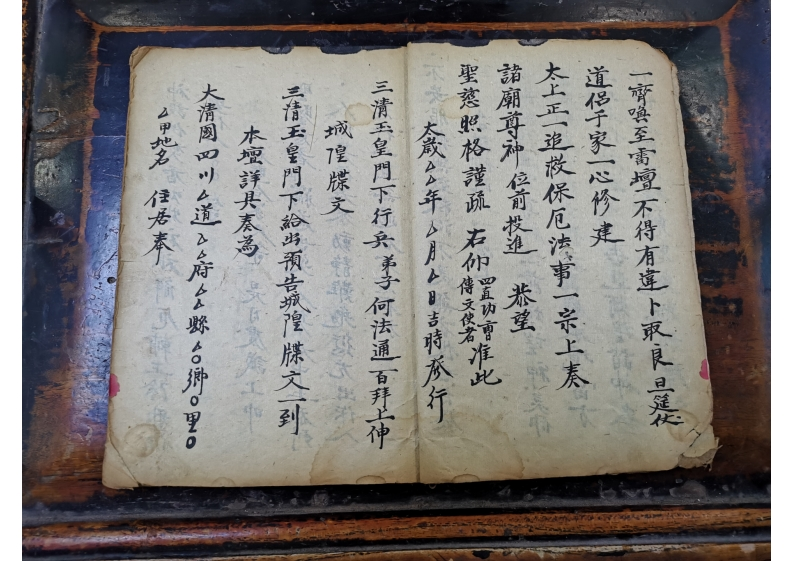 一齊喚至雷壇不得有違卜取良旦筵仗
道侣于家一心修建
太上正一追救保厄法事一宗上奏
諸廟尊神位前投進 恭望
聖慈照格謹疏 右仰四直功曹傳文使者准此
太歲厶厶年厶月厶日吉時發行
三清玉皇門下行兵弟子何法通百拜上伸
城隍牒文
三清玉皇門下給出預告城隍牒文一到
本壇詳具奏為
大清國四川厶道厶厶府厶厶縣厶〇鄉〇里〇
厶甲地名 住居奉